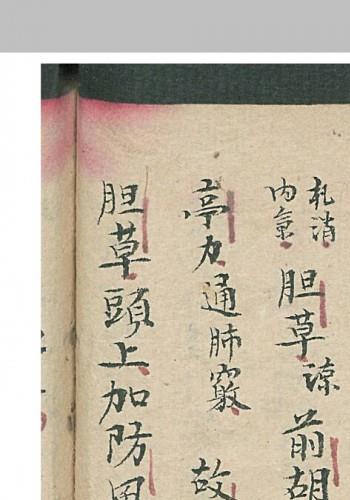 消
内
胆草諒前胡
亭力通肺竅 故
胆草頭上加防